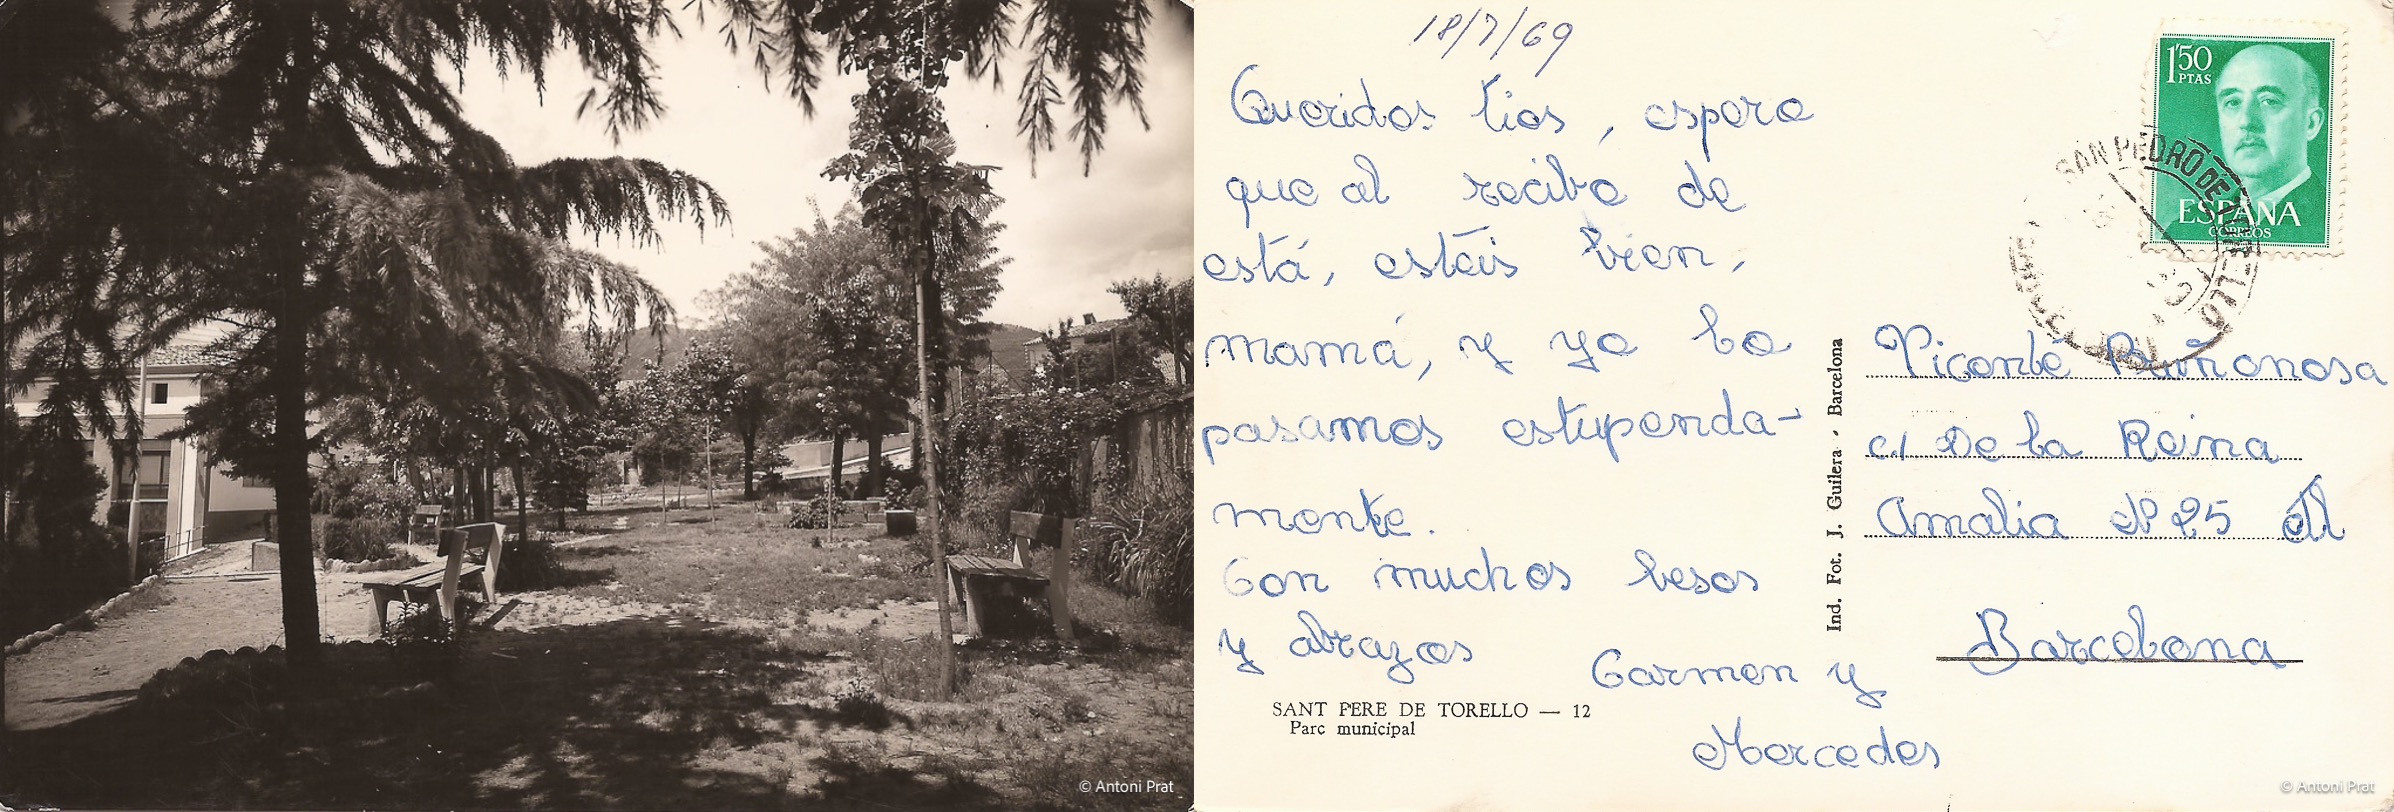 © Antoni Prat
18/7/69
Queridos tios, espero
que al recibo de
está, estéis bien,
mamá, y yo lo
pasamos estupenda-
mente.
Con muchos besos
y abrazos
Carmen y
Mercedes
SANT PERE DE TORELLO — 12
Parc municipal
Ind. Fot. J. Guilera - Barcelona
1'50
PTAS
ESPAÑA
CORREOS
SAN PEDRO DE TORELLO
Piñonosa
c/ De la Reina
Amalia Nº 25
Barcelona
© Antoni Prat